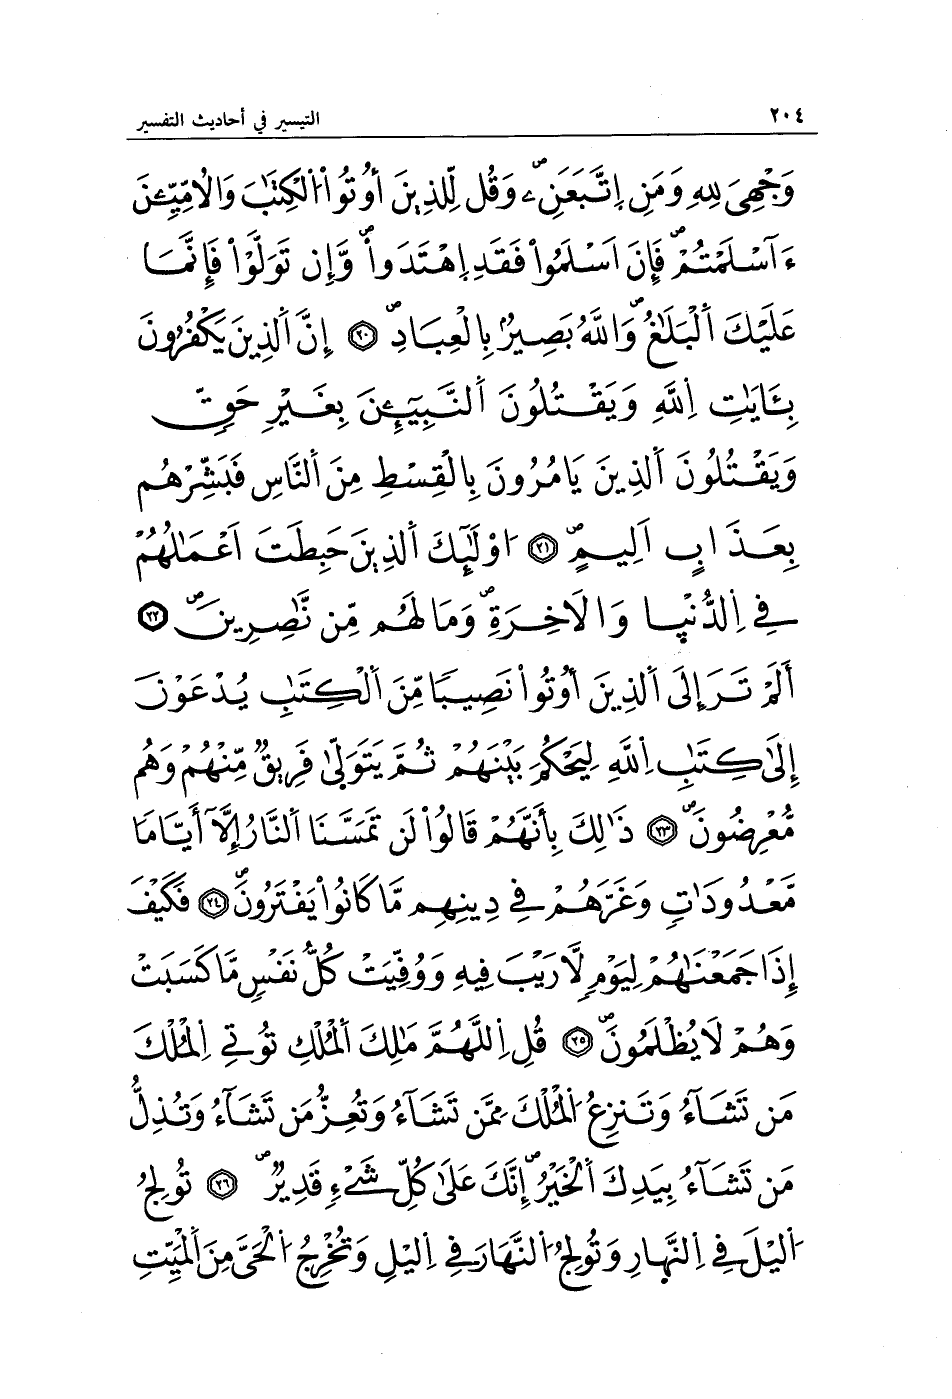 ٢٠٤
التيسير في أحاديث التفسير
وَجْهِيَ لِلهِ وَمَنِ اِتَّبَعَنِۦ وَقُل لِّلذِينَ أُوتُوا۟ اُلْكِتَٰبَ وَالُامِّيِّـۧنَ
ءَآسْلَمْتُمْ فَإِنَ اَسْلَمُوا۟ فَقَدِ اِهْتَدَوا۟ وَّإِن تَوَلَّوْا۟ فَإِنَّمَا
عَلَيْكَ اَلْبَلَٰغُ وَاللَّهُ بَصِيرٌۢ بِالْعِبَادِ ٢٠ إِنَّ اَلذِينَ يَكْفُرُونَ
بِـَٔايَٰتِ اِللَّهِ وَيَقْتُلُونَ اَلنَّبِيٓـِٕۧنَ بِغَيْرِ حَقٍّ
وَيَقْتُلُونَ اَلذِينَ يَامُرُونَ بِالْقِسْطِ مِنَ اَلنَّاسِ فَبَشِّرْهُم
بِعَذَابٍ اَلِيمٍ ٢١ اُوْلَٰٓئِكَ اَلذِينَ حَبِطَتَ اَعْمَٰلُهُمْ
فِے اِلدُّنْيا وَالَاخِرَةِ وَمَا لَهُم مِّن نَّٰصِرِينَ ٢٢
أَلَمْ تَرَ إِلَى اَلذِينَ أُوتُوا۟ نَصِيبًا مِّنَ اَلْكِتَٰبِ يُدْعَوْنَ
إِلَىٰ كِتَٰبِ اِللَّهِ لِيَحْكُمَ بَيْنَهُمْ ثُمَّ يَتَوَلَّىٰ فَرِيقٌ مِّنْهُمْ وَهُم
مُّعْرِضُونَ ٢٣ ذَٰلِكَ بِأَنَّهُمْ قَالُوا۟ لَن تَمَسَّنَا اَلنَّارُ إِلَّآ أَيَّامًا
مَّعْدُودَاتٍ وَغَرَّهُمْ فِے دِينِهِم مَّا كَانُوا۟ يَفْتَرُونَ ٢٤ فَكَيْفَ
إِذَا جَمَعْنَٰهُمْ لِيَوْمٍ لَّا رَيْبَ فِيهِ وَوُفِّيَتْ كُلُّ نَفْسٍ مَّا كَسَبَتْ
وَهُمْ لَا يُظْلَمُونَ ٢٥ قُلِ اِللَّهُمَّ مَٰلِكَ اَلْمُلْكِ تُوتِے اِلْمُلْكَ
مَن تَشَآءُ وَتَنزِعُ اُلْمُلْكَ مِمَّن تَشَآءُ وَتُعِزُّ مَن تَشَآءُ وَتُذِلُّ
مَن تَشَآءُ بِيَدِكَ اَلْخَيْرُ إِنَّكَ عَلَىٰ كُلِّ شَےْءٍ قَدِيرٌ ٢٦ تُولِجُ
اُليْلَ فِے اِلنَّهارِ وَتُولِجُ اُلنَّهَارَ فِے اِليْلِ وَتُخْرِجُ اُلْحَيَّ مِنَ اَلْمَيِّتِ